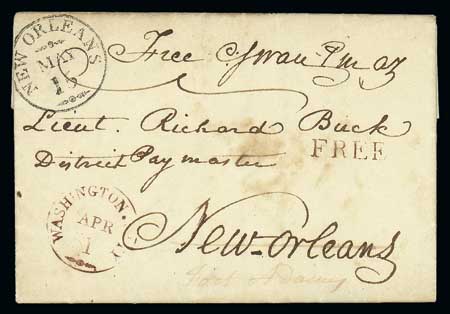 NEW ORLEANS
MAY
15
Free
Lieut. Richard Buck
District Paymaster
FREE
WASHINGTON.
APR
1
New Orleans